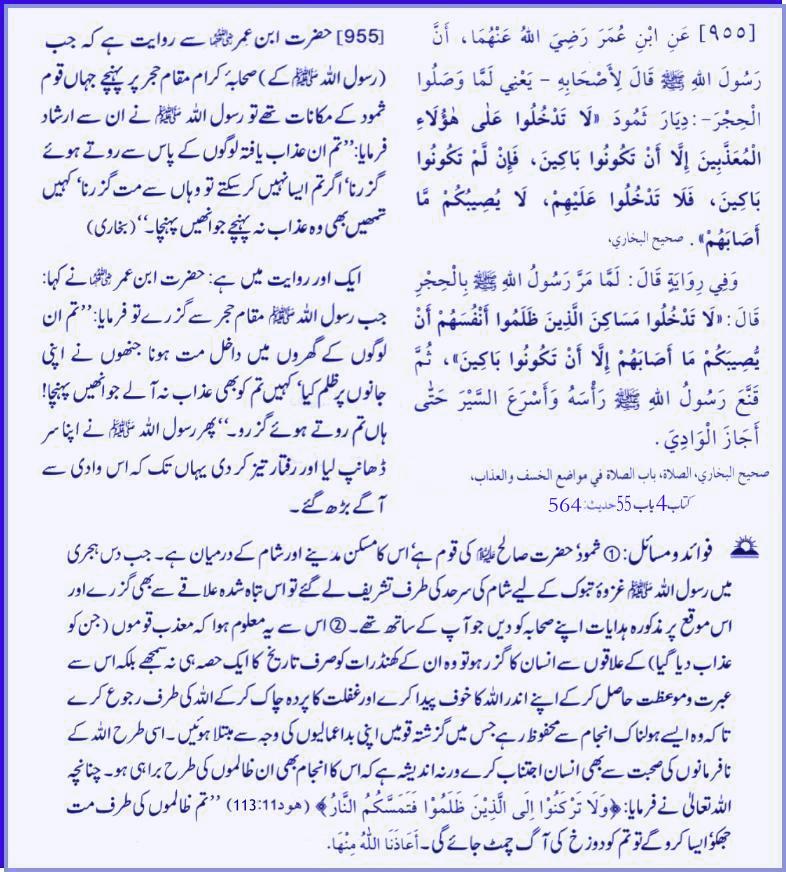 [٩٥٥] عَنِ ابْنِ عُمَرَ رَضِيَ اللهُ عَنْهُمَا، أَنَّ
رَسُولَ اللهِ ﷺ قَالَ لِأَصْحَابِهِ - يَعْنِي لَمَّا وَصَلُوا
الْحِجْرَ-: دِيَارَ ثَمُودَ «لَا تَدْخُلُوا عَلَى هٰؤُلَاءِ
الْمُعَذَّبِينَ إِلَّا أَنْ تَكُونُوا بَاكِينَ، فَإِنْ لَمْ تَكُونُوا
بَاكِينَ، فَلَا تَدْخُلُوا عَلَيْهِمْ، لَا يُصِيبُكُمْ مَّا
أَصَابَهُمْ». صحيح البخاري،
وَفِي رِوَايَةٍ قَالَ: لَمَّا مَرَّ رَسُولُ اللهِ ﷺ بِالْحِجْرِ
قَالَ: «لَا تَدْخُلُوا مَسَاكِنَ الَّذِينَ ظَلَمُوا أَنْفُسَهُمْ أَنْ
يُّصِيبَكُمْ مَا أَصَابَهُمْ إِلَّا أَنْ تَكُونُوا بَاكِينَ»، ثُمَّ
قَنَّعَ رَسُولُ اللهِ ﷺ رَأْسَهُ وَأَسْرَعَ السَّيْرَ حَتَّى
أَجَازَ الْوَادِيَ.
صحيح البخاري، الصلاة، باب الصلاة في مواضع الخسف والعذاب،
کتاب 4 باب 55 حدیث: 564
[955] حضرت ابن عمر رضی اللہ عنہما سے روایت ہے کہ جب
(رسول اللہ ﷺ کے) صحابۂ کرام مقام حجر پر پہنچے جہاں قوم
ثمود کے مکانات تھے تو رسول اللہ ﷺ نے ان سے ارشاد
فرمایا: ’’تم ان عذاب یافتہ لوگوں کے پاس سے روتے ہوئے
گزرنا‘ اگر تم ایسا نہیں کر سکتے تو وہاں سے مت گزرنا‘ کہیں
تمھیں بھی وہ عذاب نہ پہنچے جو انھیں پہنچا۔‘‘ (بخاری)
ایک اور روایت میں ہے: حضرت ابن عمر رضی اللہ عنہما نے کہا:
جب رسول اللہ ﷺ مقام حجر سے گزرے تو فرمایا: ’’تم ان
لوگوں کے گھروں میں داخل مت ہونا جنھوں نے اپنی
جانوں پر ظلم کیا‘ کہیں تم کو بھی عذاب نہ آلے جو انھیں پہنچا!
ہاں تم روتے ہوئے گزرو۔‘‘ پھر رسول اللہ ﷺ نے اپنا سر
ڈھانپ لیا اور رفتار تیز کر دی یہاں تک کہ اس وادی سے
آگے بڑھ گئے۔
فوائد ومسائل: ① ثمود‘ حضرت صالح علیہ السلام کی قوم ہے‘ اس کا مسکن مدینے اور شام کے درمیان ہے۔ جب دس ہجری
میں رسول اللہ ﷺ غزوۂ تبوک کے لیے شام کی سرحد کی طرف تشریف لے گئے تو اس تباہ شدہ علاقے سے بھی گزرے اور
اس موقع پر مذکورہ ہدایات اپنے صحابہ کو دیں جو آپ کے ساتھ تھے۔ ② اس سے یہ معلوم ہوا کہ معذب قوموں (جن کو
عذاب دیا گیا) کے علاقوں سے انسان کا گزر ہو تو وہ ان کے کھنڈرات کو صرف تاریخ کا ایک حصہ ہی نہ سمجھے بلکہ اس سے
عبرت و موعظت حاصل کر کے اپنے اندر اللہ کا خوف پیدا کرے اور غفلت کا پردہ چاک کر کے اللہ کی طرف رجوع کرے
تاکہ وہ ایسے ہولناک انجام سے محفوظ رہے جس میں گزشتہ قومیں اپنی بداعمالیوں کی وجہ سے مبتلا ہوئیں۔ اسی طرح اللہ کے
نافرمانوں کی صحبت سے بھی انسان اجتناب کرے ورنہ اندیشہ ہے کہ اس کا انجام بھی ان ظالموں کی طرح برا ہی ہو۔ چنانچہ
اللہ تعالیٰ نے فرمایا: ﴿وَلَا تَرْكَنُوْا اِلَى الَّذِيْنَ ظَلَمُوْا فَتَمَسَّكُمُ النَّارُ﴾ (ھود113:11) ’’تم ظالموں کی طرف مت
جھکو‘ ایسا کرو گے تو تم کو دوزخ کی آگ چمٹ جائے گی۔ أَعَاذَنَا اللّٰهُ مِنْهَا.